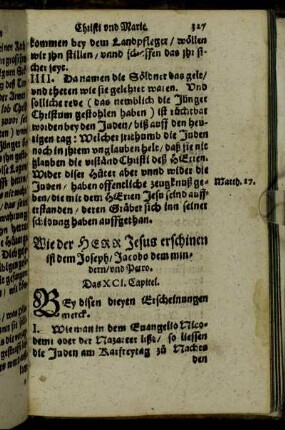 Christi vnd Marie. 327
kommen bey dem Landpfleger / wöllen
wir jhn stillen / vnnd schaffen das jhr si-
cher seyt.
IIII. Da namen die Söldner das gelt /
vnd theten wie sie gelehret waren. Vnd
solliche rede ( das nemblich die Jünger
Christum gestohlen haben ) ist rüchtbar
worden bey den Juden / biß auff den heu-
tigen tag : Welcher jrrthumb die Juden
noch in jhrem vnglauben helt / daß sie nit
glauben die vrständ Christi deß HErren.
Wider diser Hüter aber vnnd wider die
Juden / haben offenliche zeugknuß ge-
ben / die mit dem HErren Jesu seind auff-
erstanden / deren Gräber sich inn seiner
schidung haben auffgethan.
Matth. 27.
Wie der HERR Jesus erschinen
ist dem Joseph / Jacobo dem min-
dern / vnd Petro.
Das XCI. Capitel.
BEy disen dreyen Erscheinungen
merck.
I. Wie man in dem Euangelio Nico-
demi oder der Nazareer lißt / so liessen
die Juden am Karfreytag zu Nachts
den